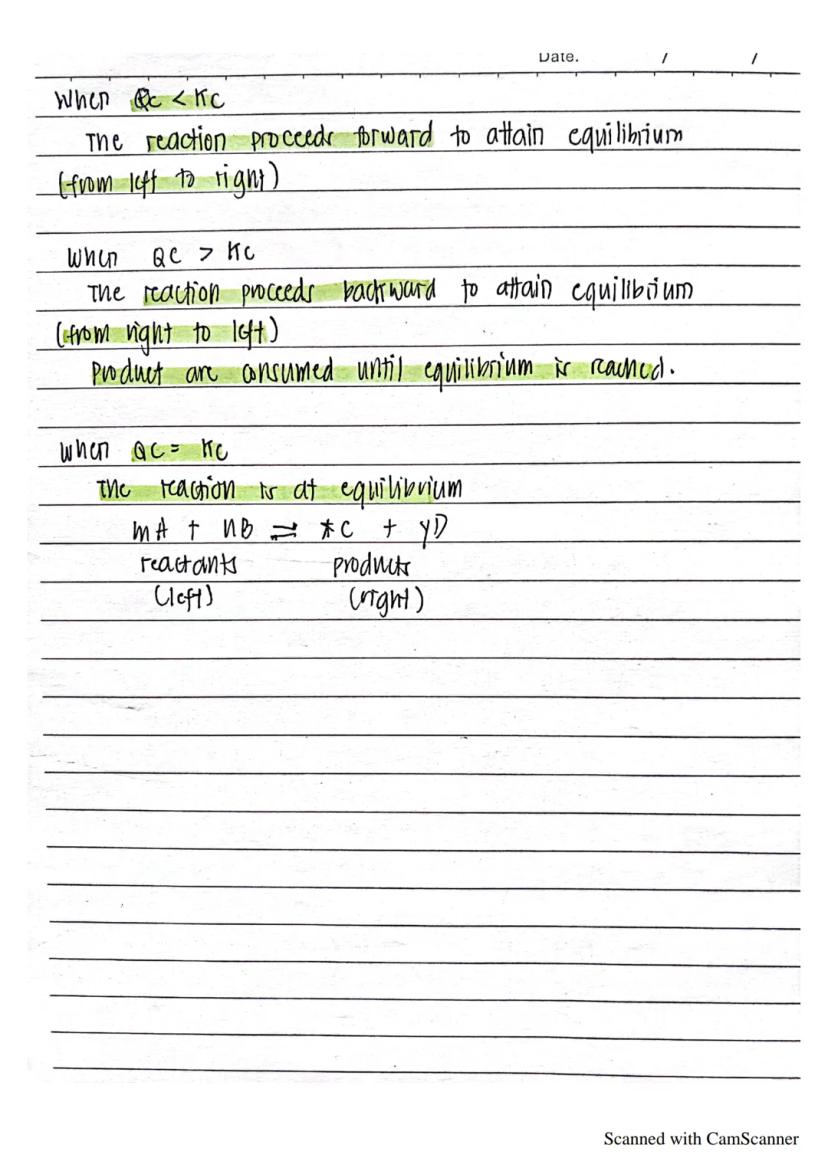 Date. / /
When Qc < Kc
The reaction proceeds forward to attain equilibrium
(from left to right)
When Qc > Kc
The reaction proceeds backward to attain equilibrium
(from right to left)
Product are consumed until equilibrium is reached.
When Qc = Kc
The reaction is at equilibrium
mA + nB ⇌ xC + yD
reactants products
(left) (right)
Scanned with CamScanner